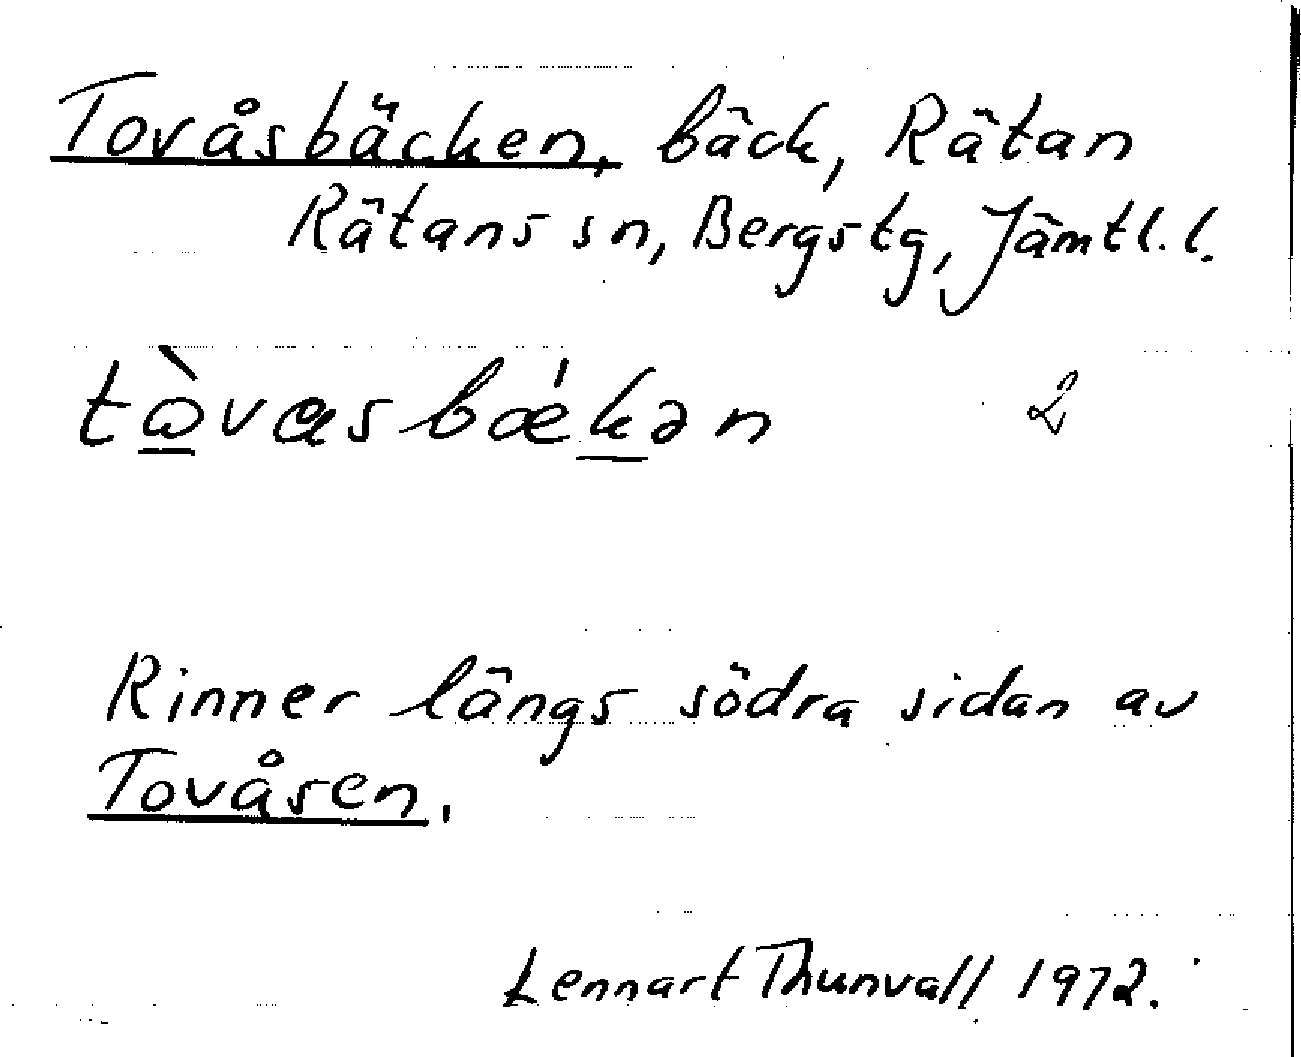 Tovåsbäcken, bäck, Rätan
Rätans sn, Bergstg, Jämtl. l.
tὼ̲vɑsbǽk̲ən 2
Rinner längs södra sidan av
Tovåsen.
Lennart Thunvall 1972.